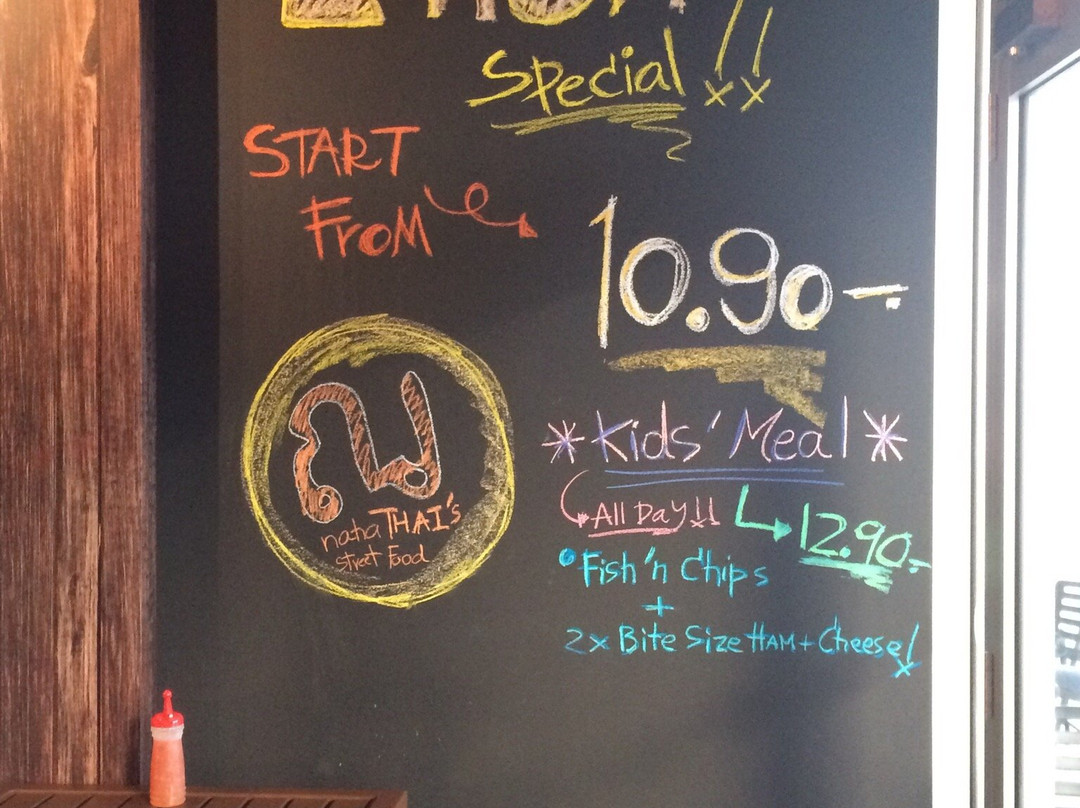 Special!!
START
FROM
10.90-
*Kids' Meal*
All Day!!
12.90.-
ณ
nahaTHAI's
street Food
•Fish'n Chips
+
2x Bite Size HAM + Cheese!